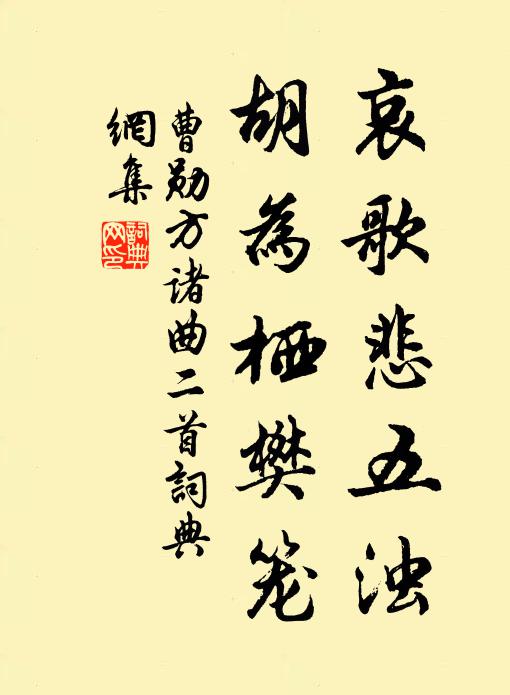 哀歌悲五浊
胡為栖樊笼
曹勋方诸曲二首詞典
網集
詞典网印